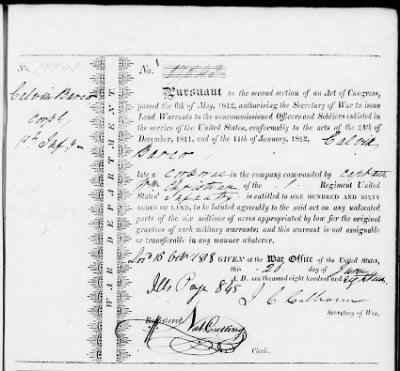 No. 17843
No. 17843
Calvin Barco
Corpl
WAR DEPARTMENT
Pursuant to the second section of an Act of Congress,
passed the 6th of May, 1812, authorising the Secretary of War to issue
Land Warrants to the noncommissioned Officers and Soldiers enlisted in
the service of the United States, conformably to the acts of the 24th of
December, 1811, and of the 11th of January, 1812, Calvin
Barco
late a corporal in the company commanded by captain
Wm Christian of the 1 Regiment United
States' Infantry is entitled to ONE HUNDRED AND SIXTY
ACRES OF LAND, to be located agreeably to the said act on any unlocated
parts of the six millions of acres appropriated by law for the original
grantees of such military warrants; and this warrant is not assignable
or transferable in any manner whatever.
18 GIVEN at the War Office of the United States,
this 20 day of
A. D. one thousand eight hundred and
Ills Page 845
J C Calhoun
Secretary of War.
Registered
Nat Cutting
Clerk.